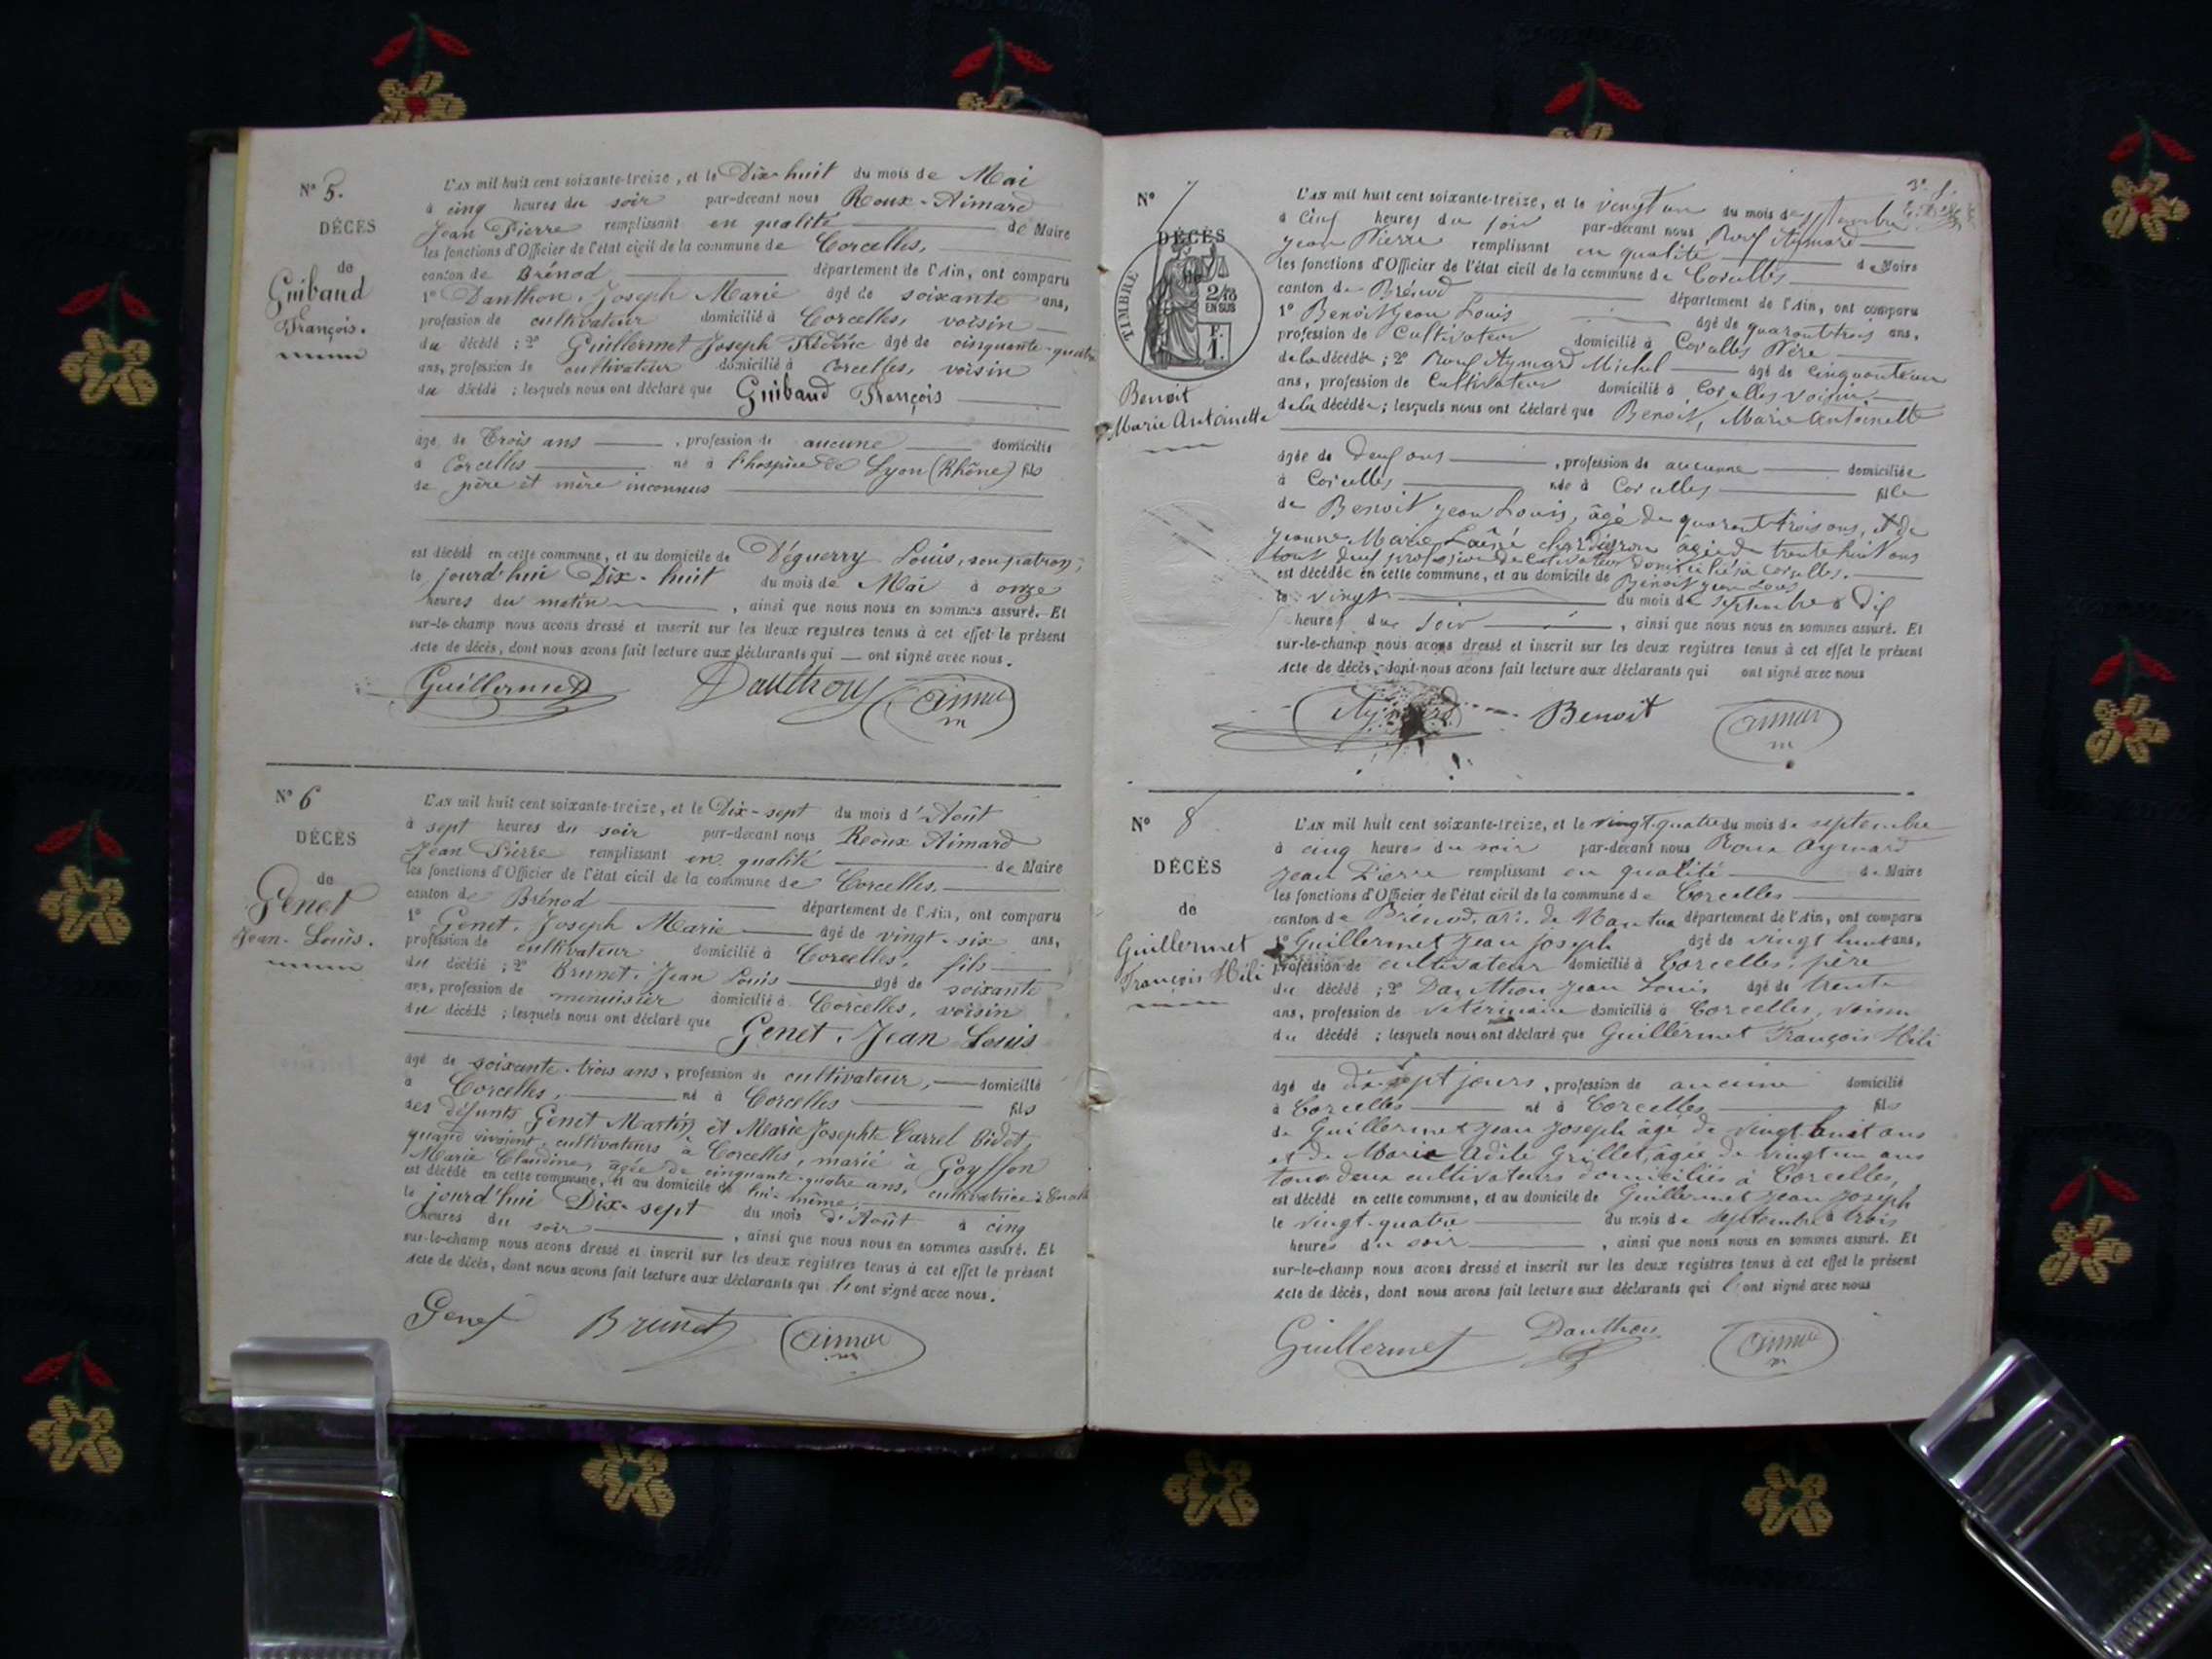 N° 5.
DÉCÈS
de
Guibaud
François.
L'AN mil huit cent soixante-treize, et le Dix-huit du mois de Mai
à cinq heures du soir par-devant nous Roux-Aimard
Jean Pierre remplissant en qualité de Maire
les fonctions d'Officier de l'état civil de la commune de Corcelles,
canton de Brénod département de l'Ain, ont comparu
1° Danthon, Joseph Marie âgé de soixante ans,
profession de cultivateur domicilié à Corcelles, voisin
du décédé ; 2° Guillermet Joseph Frédéric âgé de cinquante-quatre
ans, profession de cultivateur domicilié à Corcelles, voisin
du décédé ; lesquels nous ont déclaré que Guibaud François
âgé de Trois ans , profession de aucune domicilié
à Corcelles né à l'hospice de Lyon (Rhône) fils
de père et mère inconnus
est décédé en cette commune, et au domicile de Déguerry Louis, son patron,
le jourd'hui Dix-huit du mois de Mai à onze
heures du matin , ainsi que nous nous en sommes assuré. Et
sur-le-champ nous avons dressé et inscrit sur les deux registres tenus à cet effet le présent
acte de décès, dont nous avons fait lecture aux déclarants qui ont signé avec nous.
Guillermet Danthon Aimar
N° 6
DÉCÈS
de
Genet
Jean-Louis.
L'AN mil huit cent soixante-treize, et le Dix-sept du mois d'Août
à sept heures du soir par-devant nous Roux Aimard
Jean Pierre remplissant en qualité de Maire
les fonctions d'Officier de l'état civil de la commune de Corcelles,
canton de Brénod département de l'Ain, ont comparu
1° Genet, Joseph Marie âgé de vingt-six ans,
profession de cultivateur domicilié à Corcelles, fils
du décédé ; 2° Brunet, Jean Louis âgé de soixante
ans, profession de menuisier domicilié à Corcelles, voisin
du décédé ; lesquels nous ont déclaré que Genet, Jean Louis
âgé de soixante-trois ans, profession de cultivateur, domicilié
à Corcelles, né à Corcelles fils
des défunts Genet Martin et Marie Josephte Carrel Bidet,
quand vivaient, cultivateurs à Corcelles, marié à Goyffon
Marie Claudine, âgée de cinquante-quatre ans, cultivatrice à
est décédé en cette commune, et au domicile de lui-même,
le jourd'hui Dix-sept du mois d'Août à cinq
heures du soir , ainsi que nous nous en sommes assuré. Et
sur-le-champ nous avons dressé et inscrit sur les deux registres tenus à cet effet le présent
acte de décès, dont nous avons fait lecture aux déclarants qui ont signé avec nous.
Genet Brunet Aimar
N° 7
DÉCÈS
de
TIMBRE
2/10
EN SUS
F.
1.
Benoit
Marie Antoinette
L'AN mil huit cent soixante-treize, et le vingt un du mois de septembre
à cinq heures du soir par-devant nous Roux Aymard
Jean Pierre remplissant en qualité de Maire
les fonctions d'Officier de l'état civil de la commune de Corcelles
canton de Brénod département de l'Ain, ont comparu
1° Benoit Jean Louis âgé de quarante trois ans,
profession de Cultivateur domicilié à Corcelles Père
de la décédée ; 2° Roux Aymard Michel âgé de cinquante un
ans, profession de Cultivateur domicilié à Corcelles voisin
de la décédée ; lesquels nous ont déclaré que Benoit, Marie Antoinette
âgée de deux ans , profession de aucune domiciliée
à Corcelles née à Corcelles fille
de Benoit Jean Louis, âgé de quarante trois ans, et de
Jeanne Marie âgée de trente huit ans
tout deux profession de Cultivateur domiciliés à Corcelles.
est décédée en cette commune, et au domicile de Benoit Jean Louis
le vingt du mois de septembre à dix
heures du soir , ainsi que nous nous en sommes assuré. Et
sur-le-champ nous avons dressé et inscrit sur les deux registres tenus à cet effet le présent
acte de décès, dont nous avons fait lecture aux déclarants qui ont signé avec nous
Aymard Benoit Aimar
N° 8
DÉCÈS
de
Guillermet
François Hili
L'AN mil huit cent soixante-treize, et le vingt-quatre du mois de septembre
à cinq heures du soir par-devant nous Roux Aymard
Jean Pierre remplissant en qualité de Maire
les fonctions d'Officier de l'état civil de la commune de Corcelles
canton de Brénod, arr. de Nantua département de l'Ain, ont comparu
1° Guillermet Jean Joseph âgé de vingt huit ans,
profession de cultivateur domicilié à Corcelles, père
du décédé ; 2° Danthon Jean Louis âgé de trente
ans, profession de vétérinaire domicilié à Corcelles, voisin
du décédé ; lesquels nous ont déclaré que Guillermet François Hili
âgé de dix-sept jours, profession de aucune domicilié
à Corcelles né à Corcelles fils
de Guillermet Jean Joseph âgé de vingt huit ans
et de Marie Adèle Grillet, âgée de vingt un ans
tous deux cultivateurs domiciliés à Corcelles,
est décédé en cette commune, et au domicile de Guillermet Jean Joseph
le vingt-quatre du mois de septembre à trois
heures du soir , ainsi que nous nous en sommes assuré. Et
sur-le-champ nous avons dressé et inscrit sur les deux registres tenus à cet effet le présent
acte de décès, dont nous avons fait lecture aux déclarants qui ont signé avec nous
Guillermet Danthon Aimar